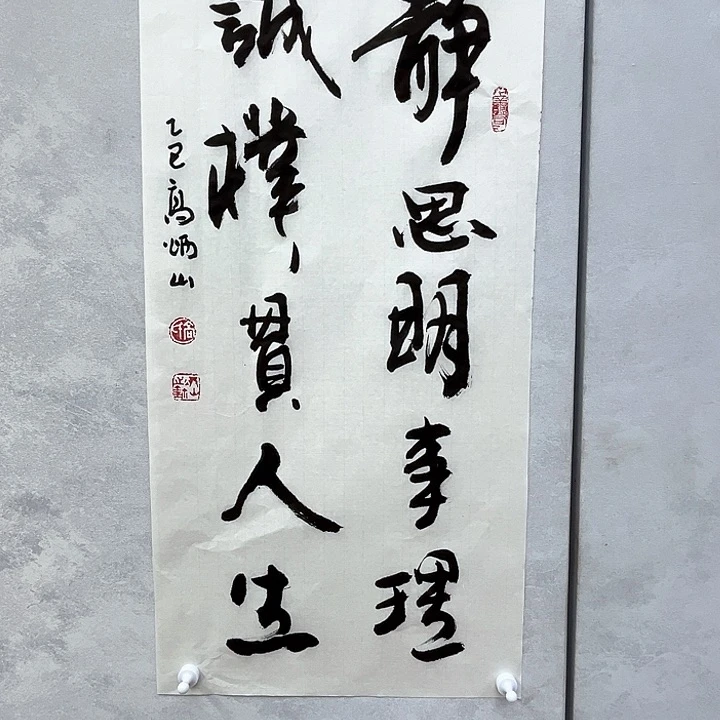 静思明事理
誠樸貫人生
乙巳高炳山